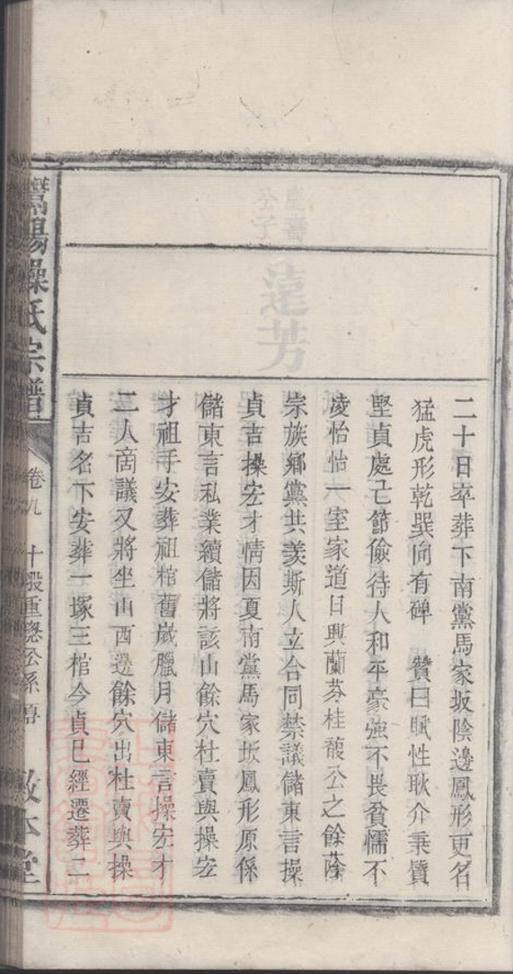 二十日卒葬下南黨馬家坂陰邊鳳形更名
猛虎形乾巽向有碑 贊曰賦性耿介秉質
堅貞處己節儉待人和平豪強不畏貧懦不
凌怡怡一室家道日興蘭芬桂馥公之餘蔭
宗族鄉黨共羨斯人立合同禁議儲東言操
貞吉操宏才情因夏南黨馬家坂鳳形原係
儲東言私業續儲將該山餘穴杜賣與操宏
才祖手安葬祖棺舊歲臘月儲東言操宏才
二人啇議又將坐山西邊餘穴出杜賣與操
貞吉名下安葬一塚三棺今貞已經遷葬二
操氏宗譜
卷九
十
敦本堂
遠芳